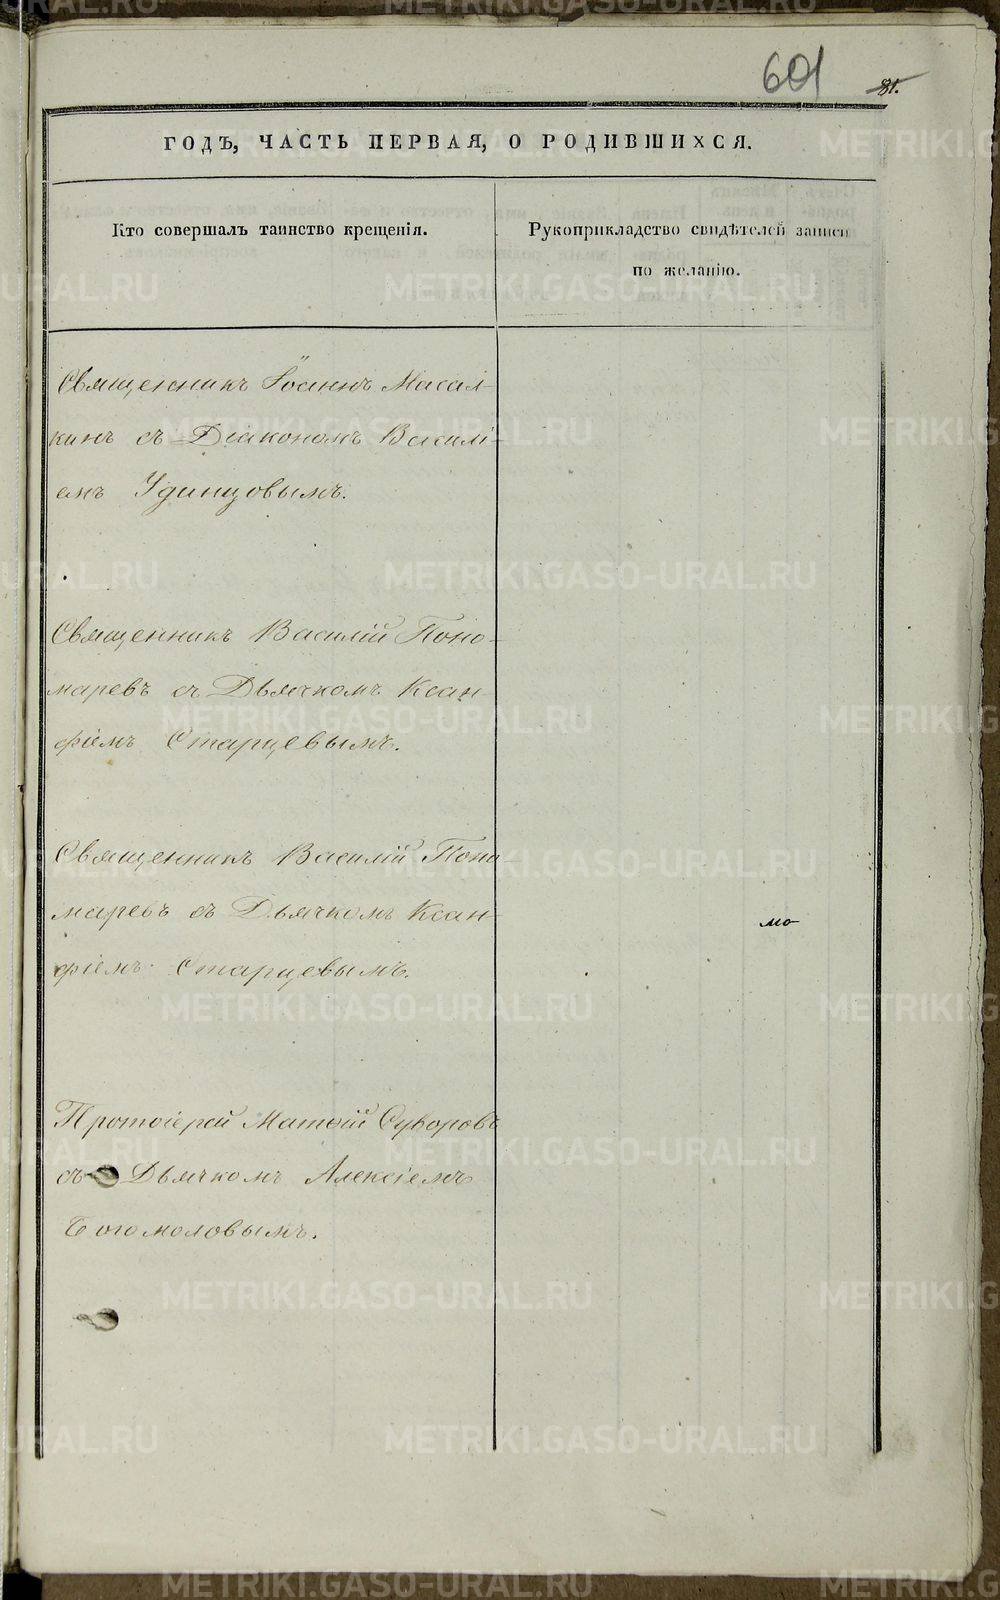 601
81.
ГОДЪ, ЧАСТЬ ПЕРВАЯ, О РОДИВШИХСЯ.
Кто совершалъ таинство крещенія.
Рукоприкладство свидѣтелей записи
по желанію.
Священникъ Іоаннъ Масал-
кинъ съ Діакономъ Василі-
емъ Удинцовымъ.
Священникъ Василій Поно-
маревъ съ Дьячкомъ Ксан-
фіемъ Старцевымъ.
Священникъ Василій Поно-
маревъ съ Дьячкомъ Ксан-
фіемъ Старцевымъ.
мо
Протоіерей Матѳій Суворовъ
съ Дьячкомъ Алексіемъ
Богомоловымъ.
METRIKI.GASO-URAL.RU